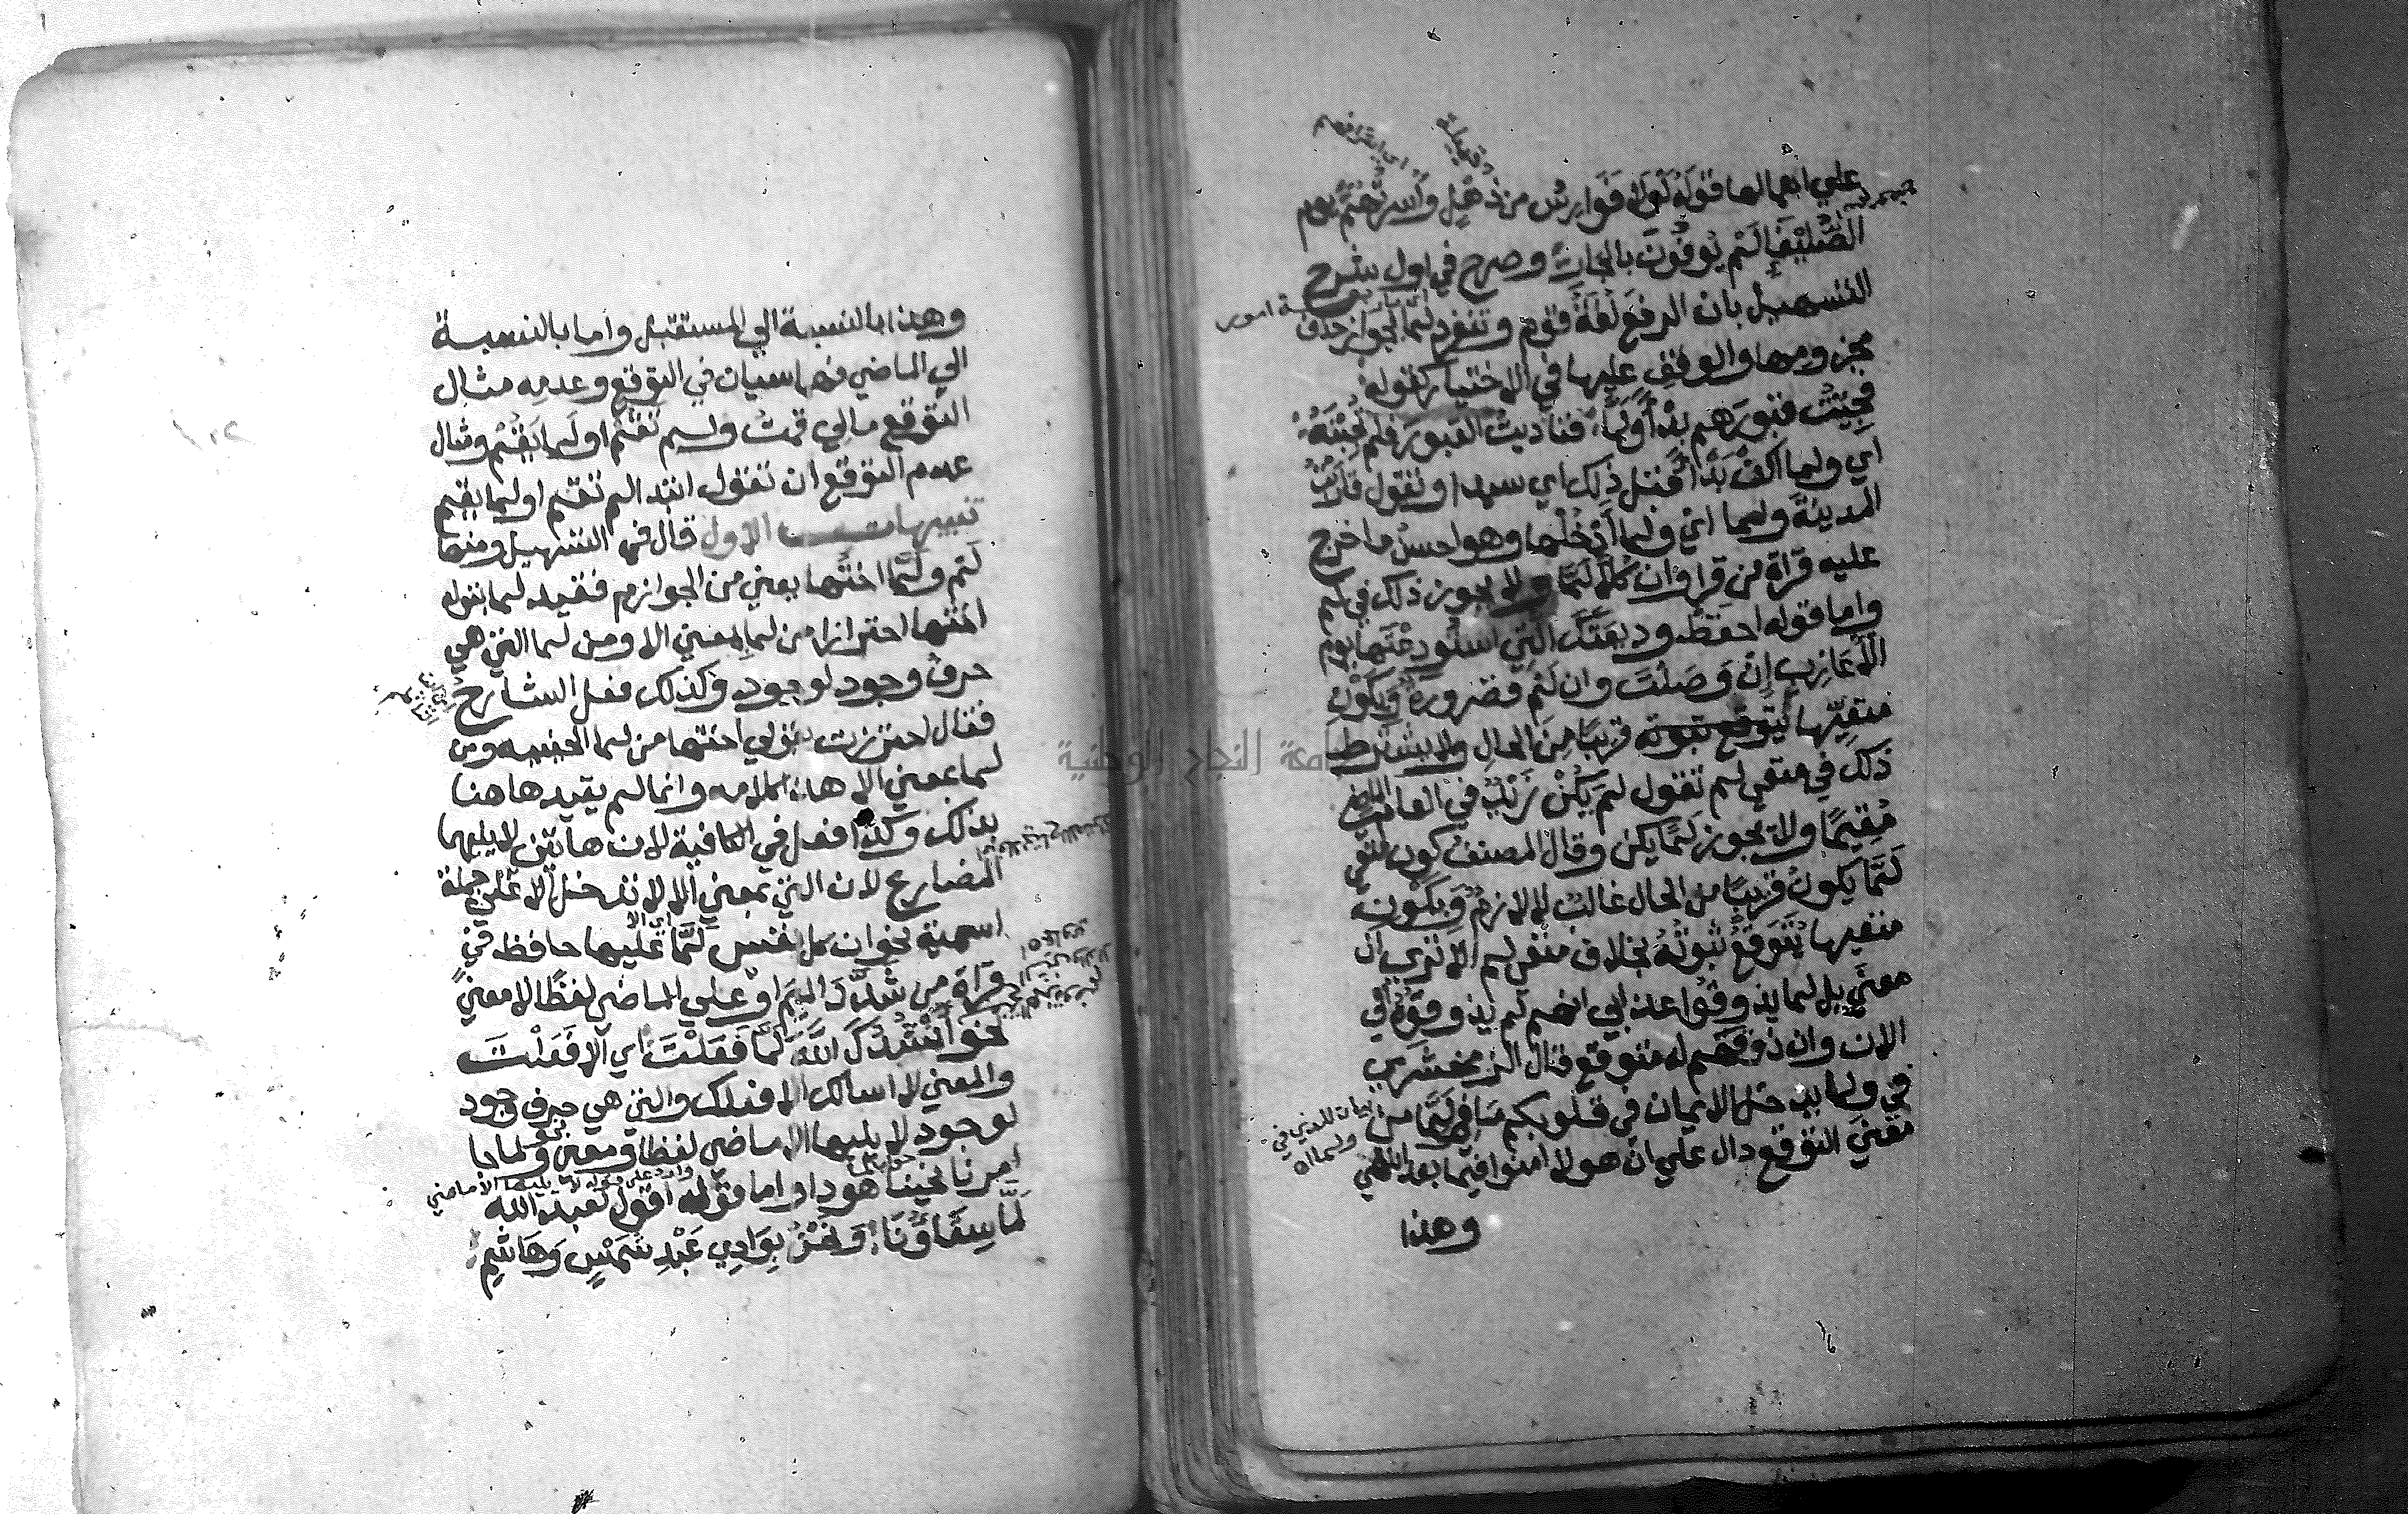 على اهمالها قوله لولا فوارس من ذهل واسرتهم يوم
الصليفا لم يوفون بالجار وصرح في اول شرح
التسهيل بان الرفع لغة قوم وتنفرد لما بجواز حذف
مجزومها والوقف عليها في الاختيار كقوله
فجئت قبورهم بدأ ولما فناديت القبور فلم تجبنه
اي ولما اكن بدأ قبل ذلك اي سيدا وتقول قاربت
المدينة ولما اي ولما أدخلها وهو احسن ما خرج
عليه قراة من قرا وان كلا لما ولا يجوز ذلك في لم
واما قوله احفظ وديعتك التي استودعتها يوم
الاعازب ان وصلت وان لم فضرورة ويكون
منفيها قريبا من الحال ولا يشترط
ذلك في منفي لم تقول لم يكن زيد في العام الماضي
مقيما ولا يجوز لما يكن وقال المصنف كون منفي
لما يكون قريبا من الحال غالب لا لازم ويكون
منفيها يتوقع ثبوته بخلاف منفي لم الا ترى ان
معنى بل لما يذوقوا عذاب انهم لم يذوقوه الى
الان وان ذوقهم له متوقع قال الزمخشري
في ولما يدخل الايمان في قلوبكم ما في لما من
معنى التوقع دال على ان هولا امنوا فيما بعد
وهذا
وهذا بالنسبة الى المستقبل واما بالنسبة
الى الماضي فهما سيان في التوقع وعدمه مثال
التوقع مالي قمت ولم تقم او لما تقم ومثال
عدم التوقع ان تقول ابتدا لم تقم او لما يقم
تنبيهات الاول قال في التسهيل ومنها
لم ولما اختها يعني من الجوازم فقيد لما بقوله
اختها احترازا من لما بمعنى الا ومن لما التي هي
حرف وجود لوجود وكذلك فعل الشارح
فقال احترزت بقولي اختها من لما الحينية ومن
لما بمعنى الا هذا كلامه وانما لم يقيدها هنا
بذلك وكذا فعل في الكافية لان هاتين لا يليهما
المضارع لان التي بمعنى الا لا تدخل الا على جملة
اسمية نحو ان كل نفس لما عليها حافظ في
قراة من شدد الميم او على الماضي لفظا لا معنى
نحو أنشدك الله لما فعلت اي الا فعلت
والمعنى لا اسالك الا فعلك والتي هي حرف وجود
لوجود لا يليها الا ماضي لفظا ومعنى نحو ولما جا
امرنا نجينا هودا واما قوله اقول لعبد الله
لما سقاؤنا ونحن بوادي عبد شمس وهاشم